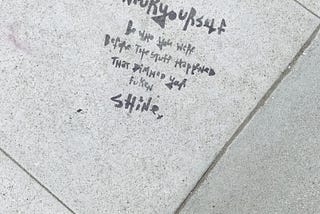 YourselF
Be who You were
BeFore The Stuff HappeneD
ThaT DiMMeD YouR
FuKeN
SHiNe,